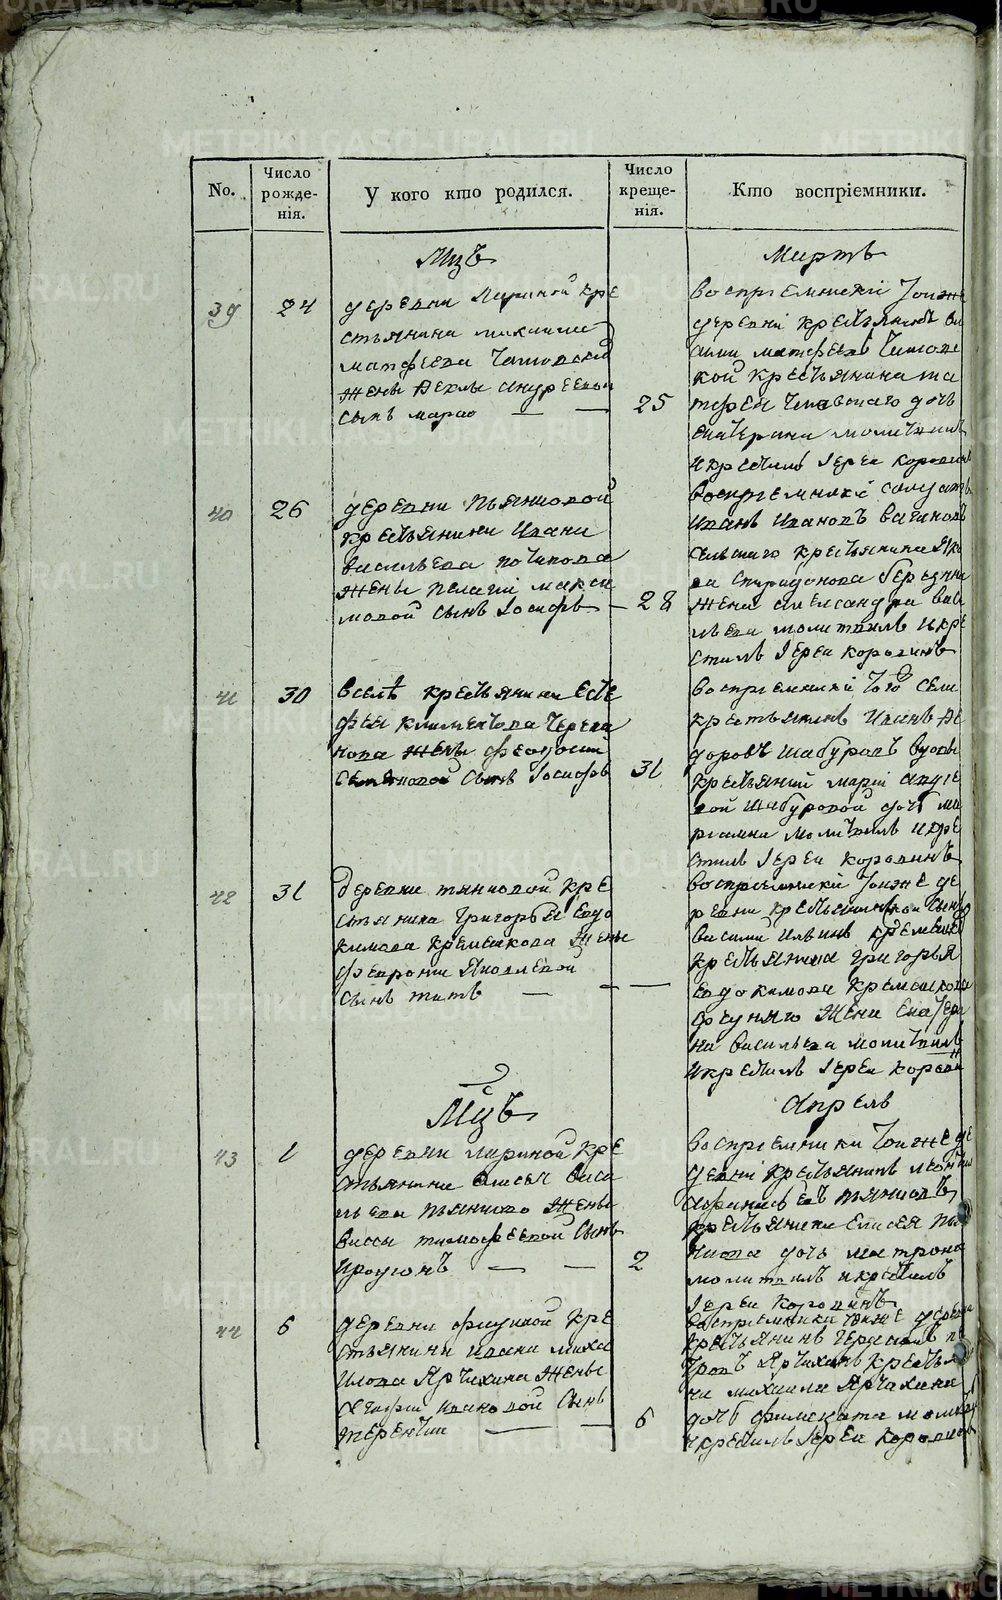 No.
Число рожденія.
У кого кто родился.
Число крещенія.
Кто воспріемники.
Мцъ
Мартъ
39
24
деревни Лариной кре
стьянина
матфеева
жены Феклы андреевой
сынъ марко
25
воспріемники тоиже
деревни крестьянинъ ва
силий матфеевъ
кой крестьянина ма
тфея дочь
екатерина молитвилъ
и крестилъ Іереи Коровинъ
40
26
деревни пьянковой
крестьянина Ивана
васильева
жены пелагіи макси
мовой сынъ Іосифъ
28
воспріемники солдатъ
Иванъ Ивановъ вагиновъ
сельскаго крестьянина Яко
ва спиридонова
жена александра васи
льева молитвилъ и кре
стилъ Іереи коровинъ
41
30
в селѣ крестьянина
фея климентова черепа
нова жены феодосіи
семеновой сынъ Іосифъ
31
воспріемники того села
крестьянинъ Иванъ Фе
доровъ шабуровъ вдовы
крестьянки маріи андре
вой шабуровой дочь ма
ріамна молитвилъ и кре
стилъ Іереи коровинъ
42
31
деревни пянковой кре
стьянина григорья евдо
кимова кремешкова жены
февроніи Яковлевой
сынъ титъ
воспріемники тоиже де
ревни сынъ
василий
крестьянина григорья
евдокимова кремешкова
жена екатери
на васильева молитвилъ
и крестилъ Іереи Корови
Мцъ
Апрель
43
1
деревни лариной кре
стьянина елисея васи
льева пьянкова жены
вассы тимофеевой сынъ
иродіонъ
2
воспріемники тоиже де
крестьянинъ леонтий
афанасьевъ пьянковъ
крестьянина Елисея пья
нкова дочь матрона
молитвилъ и крестилъ
Іереи Коровинъ
44
6
деревни фединой кре
стьянина ивана миха
илова Ярчихина жены
Агафіи ивановой сынъ
терентии
6
воспріемники тоиже деревни
крестьянинъ пе
тровъ Ярчихинъ крестья
на михаила Ярчихина
дочь молитвил
и крестилъ Іереи Коровинъ
METRIKI.GASO-URAL.RU